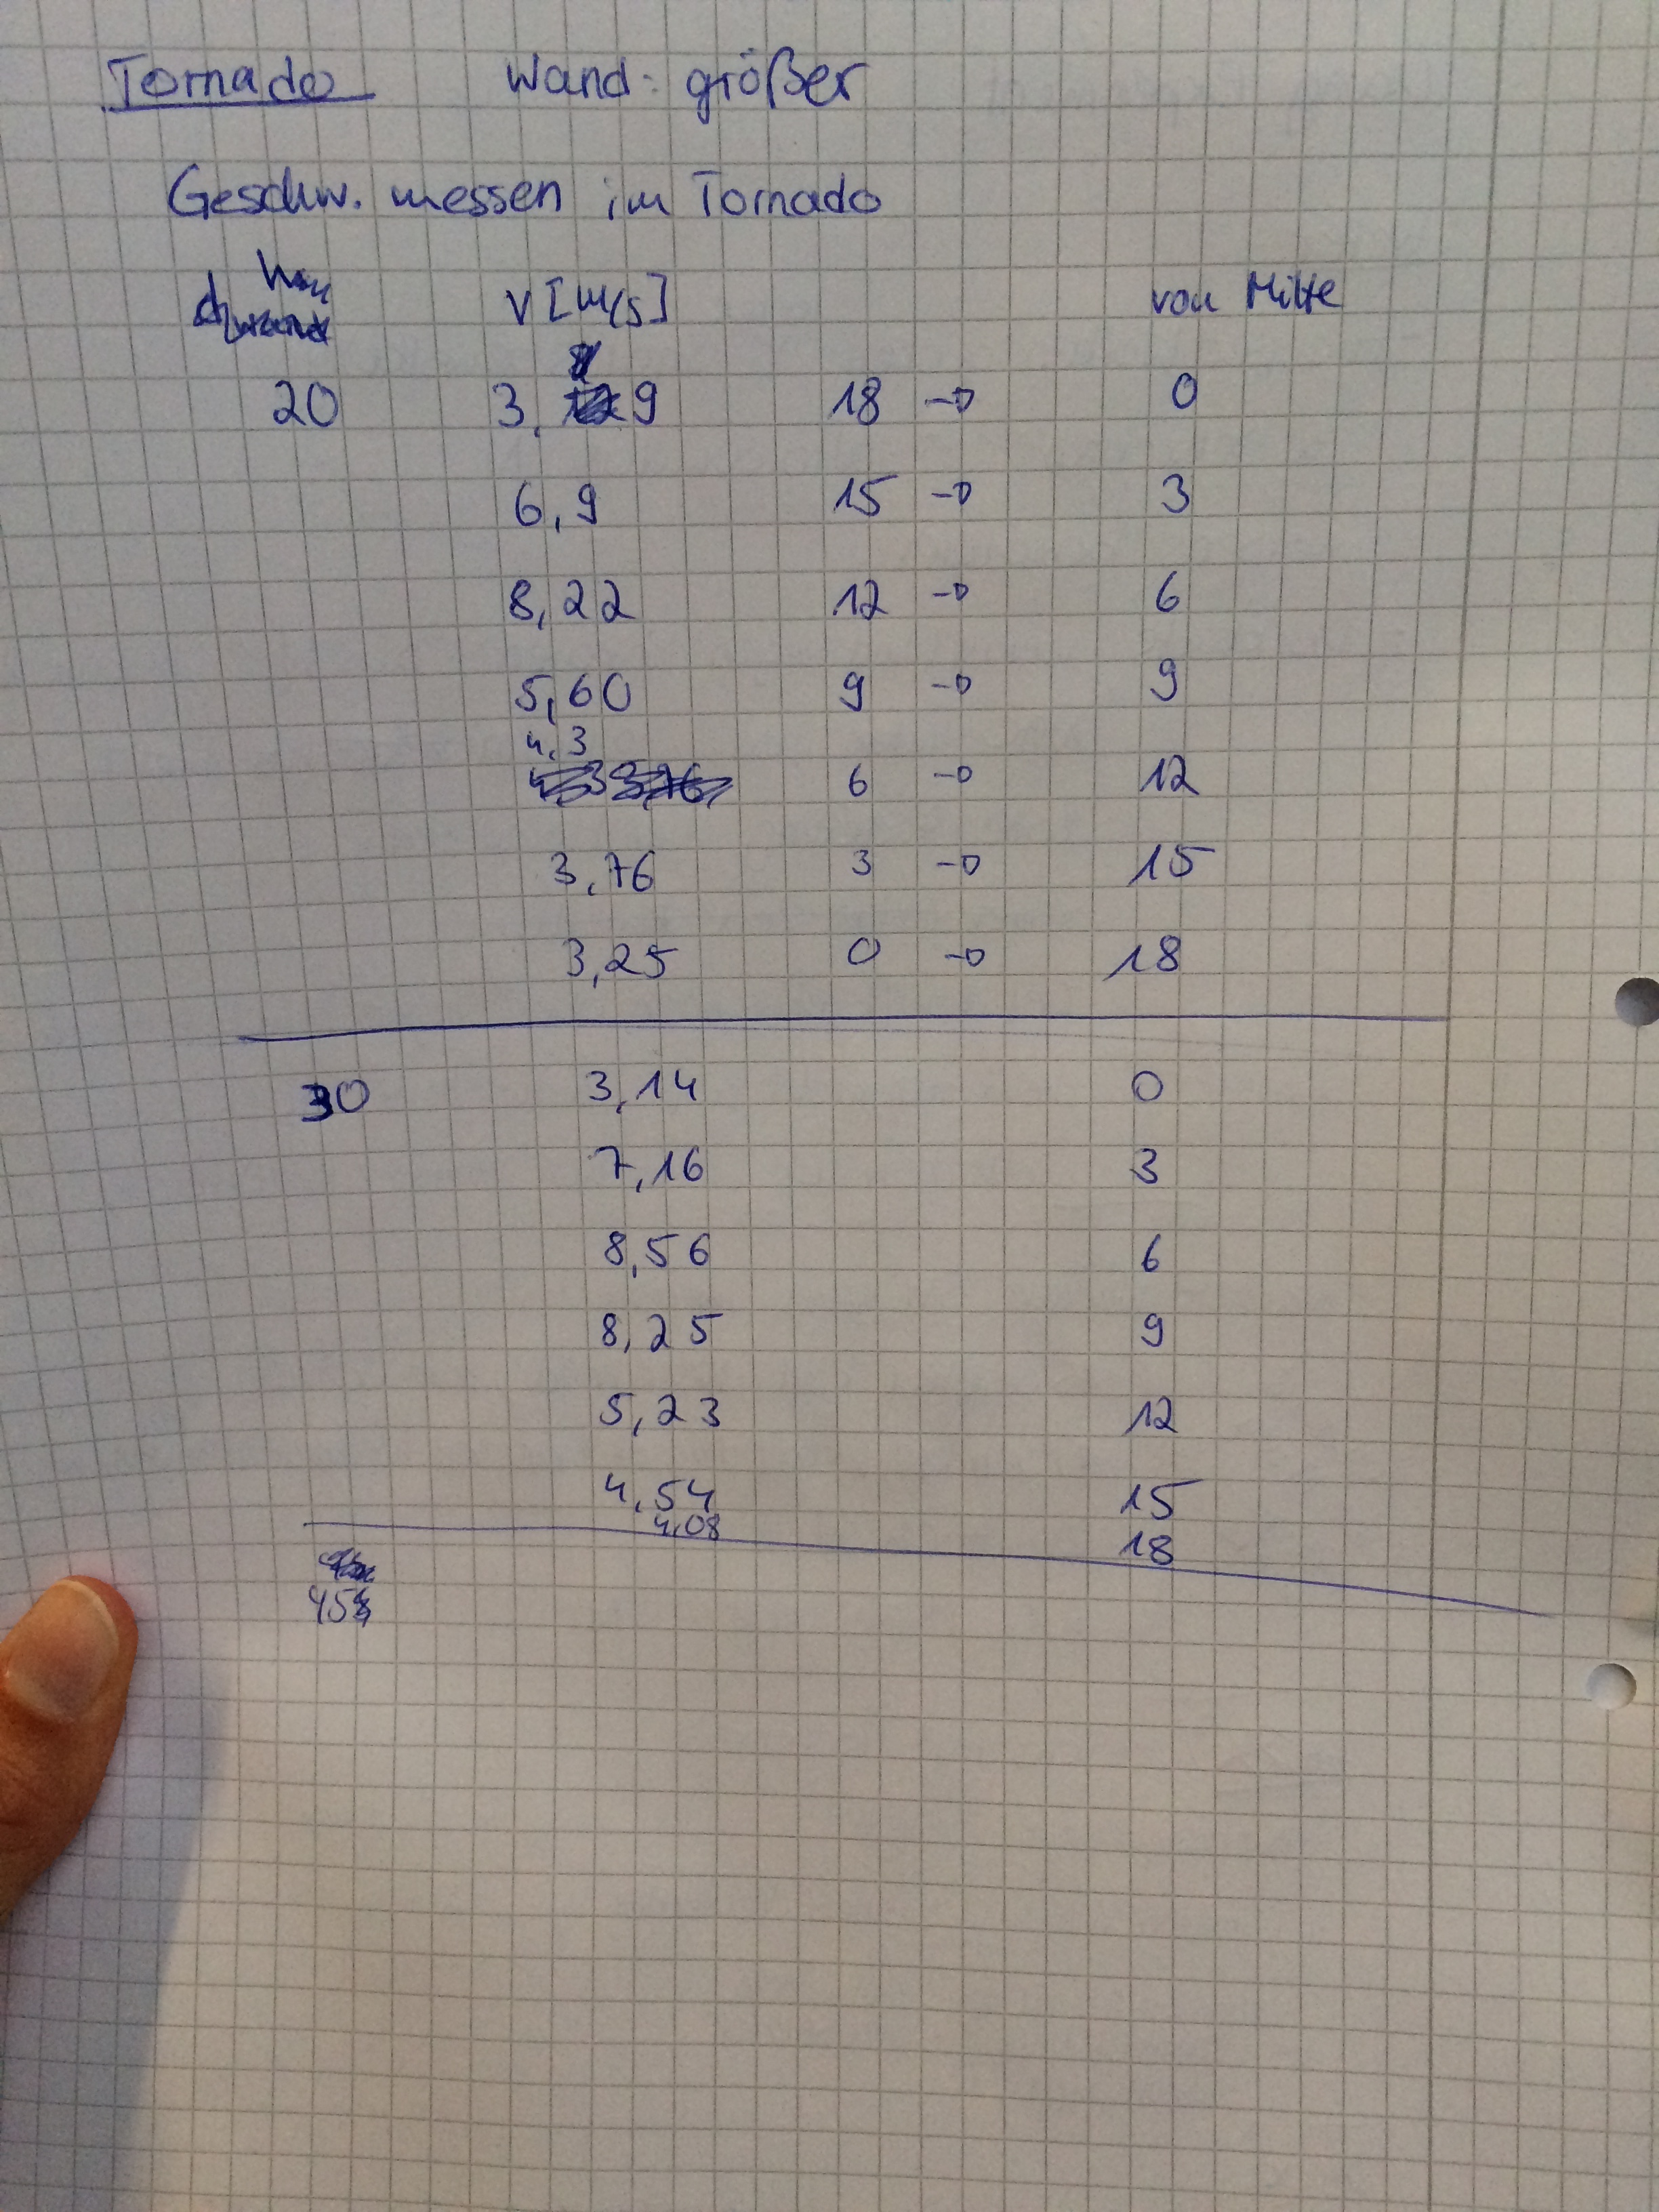 Tornado Wand: größer
Geschw. messen im Tornado
V [m/s] von Mitte
20 3,9 18 → 0
6,9 15 → 3
8,22 12 → 6
5,60 9 → 9
4,3
6 → 12
3,76 3 → 15
3,25 0 → 18
30 3,14 0
7,16 3
8,56 6
8,25 9
5,23 12
4,54 15
4,08 18
45